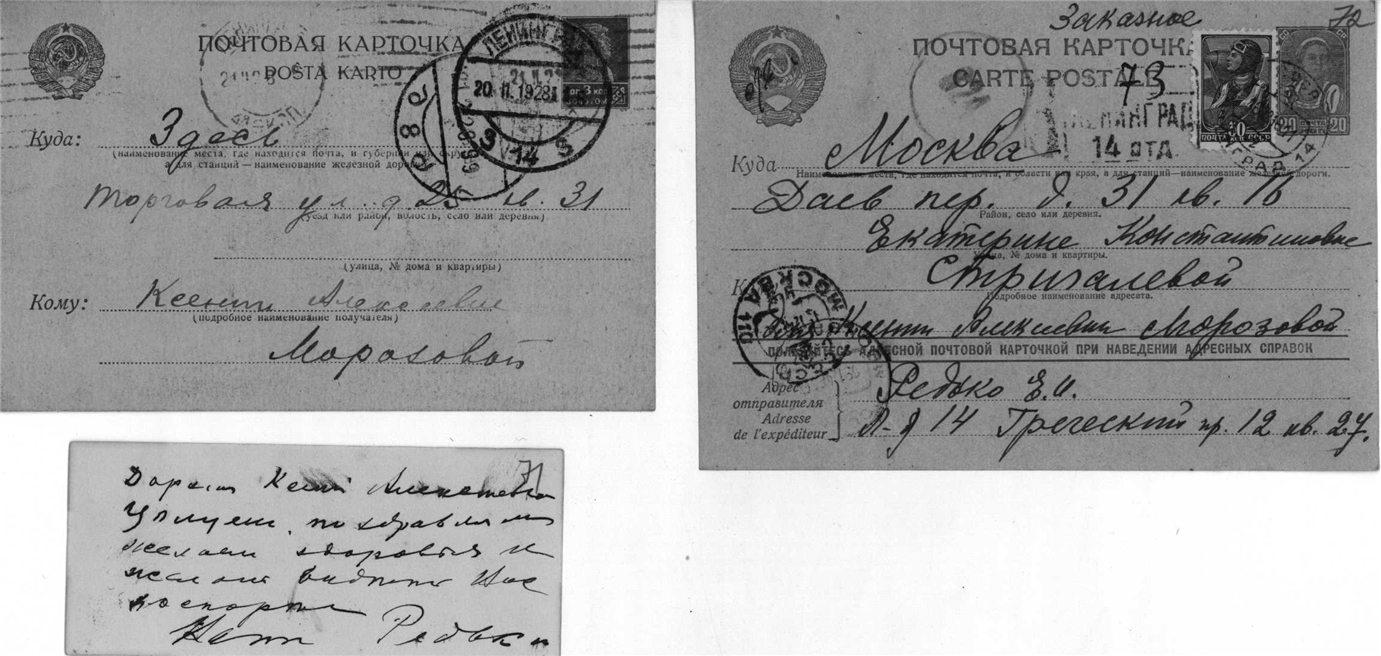 ПОЧТОВАЯ КАРТОЧКА
POŜTA KARTO
ЛЕНИНГРАД
20.11.1928
14
Куда: Здесь
(наименование места, где находится почта, и губернии или округа,
а для станций—наименование железной дороги)
Торговая ул. д. 25 кв. 31
(уезд или район, волость, село или деревня)
(улица, № дома и квартиры)
Кому: Ксении Алексеевне
(подробное наименование получателя)
Морозовой
71
Дорогая Ксения Алексеевна
Целуем, поздравляем
желаем здоровья и
желаем видеть Вас
поскорее
Редько
Заказное
72
ПОЧТОВАЯ КАРТОЧКА
CARTE POSTALE
73
ЛЕНИНГРАД
14 отд.
20 20
Куда Москва
Наименование места, где находится почта, и области или края, а для станций—наименование железной дороги.
Даев пер. д. 31 кв. 16
Район, село или деревня.
Екатерине Константиновне
Улица, № дома и квартиры.
Стригалевой
Подробное наименование адресата.
для Ксении Алексеевны Морозовой
МОСКВА 110
ПОЛЬЗУЙТЕСЬ АДРЕСНОЙ ПОЧТОВОЙ КАРТОЧКОЙ ПРИ НАВЕДЕНИИ АДРЕСНЫХ СПРАВОК
Адрес отправителя
Adresse de l'expéditeur
Редько Е.И.
Л-д 14 Греческий пр. 12 кв. 27.